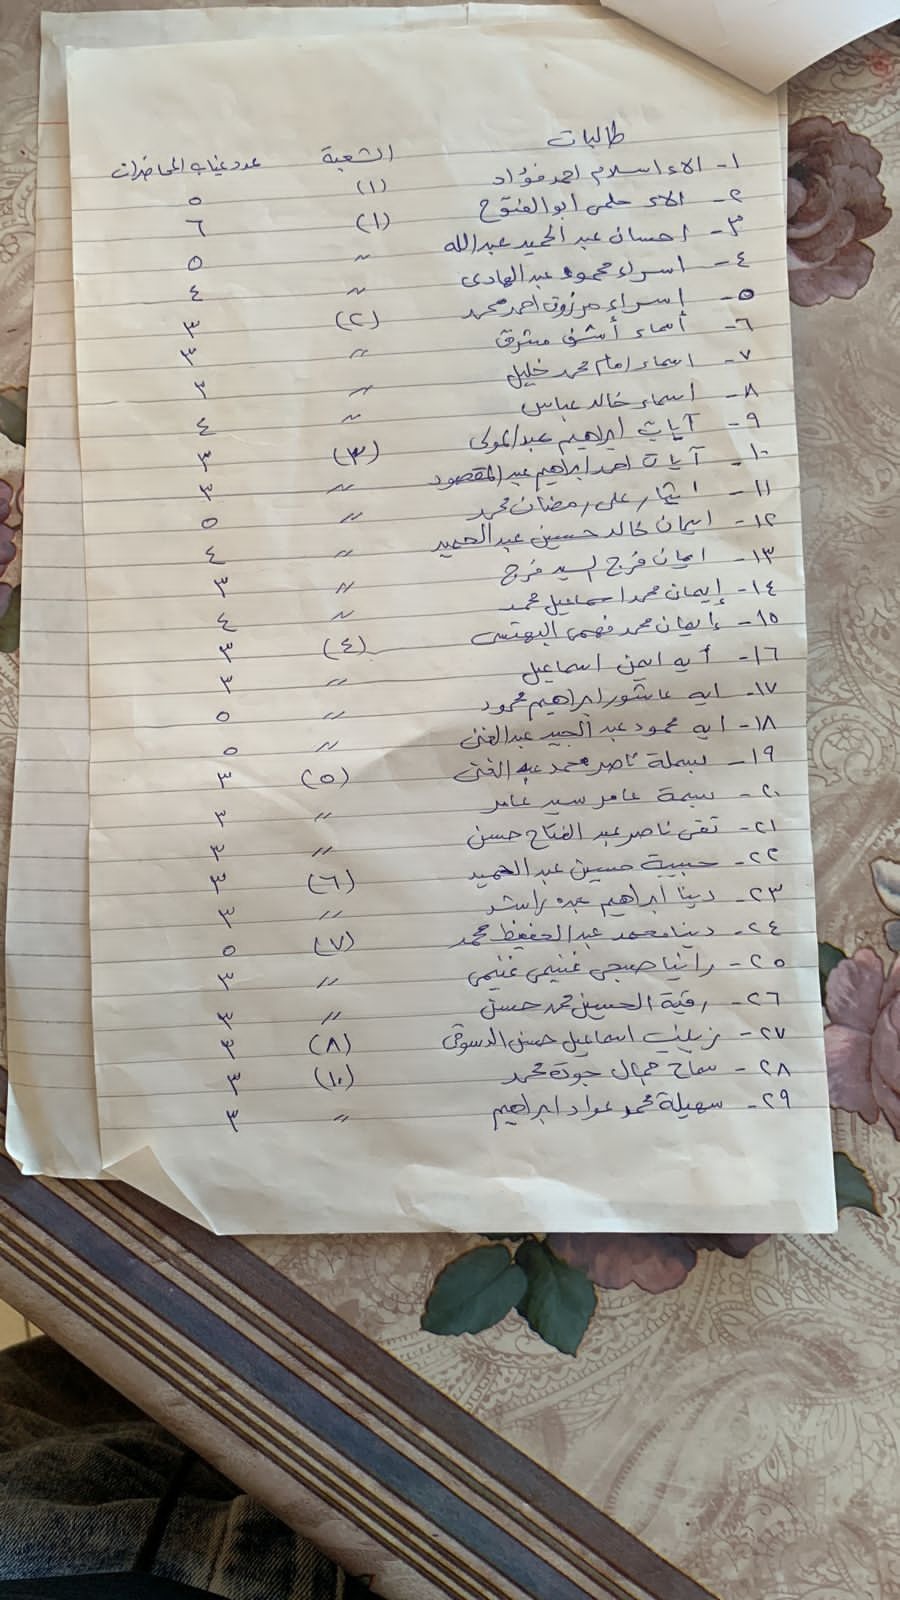 طالبات الشعبة عدد غياب المحاضرات
١- الاء اسلام احمد فؤاد (١) ٥
٢- الاء حلمى ابو الفتوح (١) ٦
٣- احسان عبد الحميد عبد الله 〃 ٥
٤- اسراء محمود عبد الهادى 〃 ٤
٥- إسراء مرزوق احمد محمد (٢) ٣
٦- أسماء أشرف 〃 ٣
٧- اسماء امام محمد خليل 〃 ٣
٨- اسماء خالد عباس 〃 ٤
٩- آيات ابراهيم عبد المولى (٣) ٣
١٠- آيات احمد ابراهيم عبد المقصود 〃 ٣
١١- على رمضان محمد 〃 ٥
١٢- ايمان خالد حسين عبد الحميد 〃 ٤
١٣- ايمان فرج السيد فرج 〃 ٣
١٤- إيمان محمد اسماعيل محمد 〃 ٤
١٥- إيمان محمد فهمى (٤) ٣
١٦- أيه ايمن اسماعيل 〃 ٣
١٧- ايه عاشور ابراهيم محمود 〃 ٥
١٨- ايه محمود عبد الجيد عبد الغنى 〃 ٥
١٩- بسملة ناصر محمد عبد الغنى (٥) ٣
٢٠- بسمة عامر سيد عامر 〃 ٣
٢١- تقى ناصر عبد الفتاح حسن 〃 ٣
٢٢- حبيبة حسين عبد الحميد (٦) ٣
٢٣- دينا ابراهيم عبده راشد 〃 ٣
٢٤- دينا محمد عبد الحفيظ محمد (٧) ٥
٢٥- رانيا صبحى غنيمى غنيمى 〃 ٣
٢٦- رقية الحسين محمد حسن 〃 ٣
٢٧- زينب اسماعيل حسن الدسوقى (٨) ٣
٢٨- سماح جمال جودة محمد (١٠) ٣
٢٩- سهيلة محمد عواد ابراهيم 〃 ٣